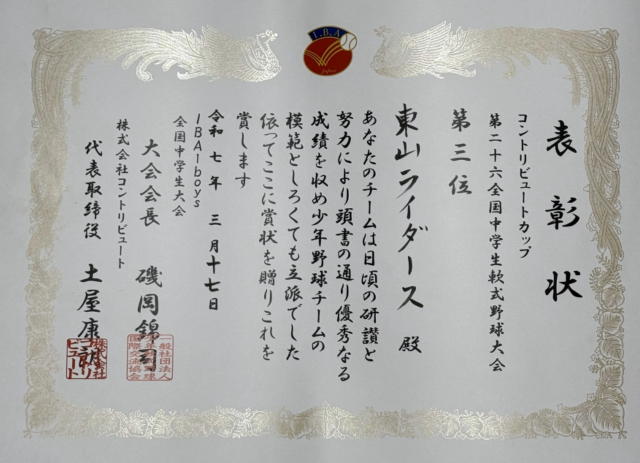 I.B.A
表彰状
コントリビュートカップ
第二十六全国中学生軟式野球大会
第三位
東山ライダース 殿
あなたのチームは日頃の研讃と
努力により頭書の通り優秀なる
成績を収め少年野球チームの
模範としろくても立派でした
依ってここに賞状を贈りこれを
賞します
令和七年 三月十七日
IBA-boys
全国中学生大会
大会会長 磯岡錦司
株式会社コントリビュート
代表取締役 土屋康